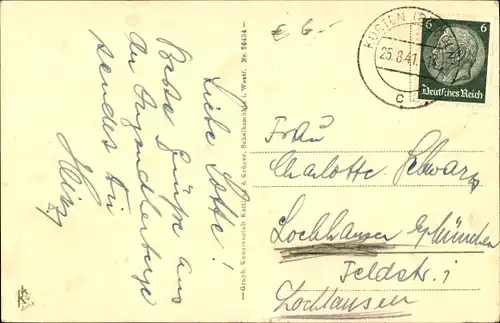 Liebe Lotte!
Beste Grüße aus
der Jugendherberge
sendet Dir
Heinz
Graph. Kunstanstalt Kettling & Krüger, Schalksmühle i. Westf. Nr. 20484
€ 6.-
25.8.41
c
6 6
Deutsches Reich
Frau
Charlotte Schwarz
Lochhausen b/München
Feldstr. 1
Lochhausen